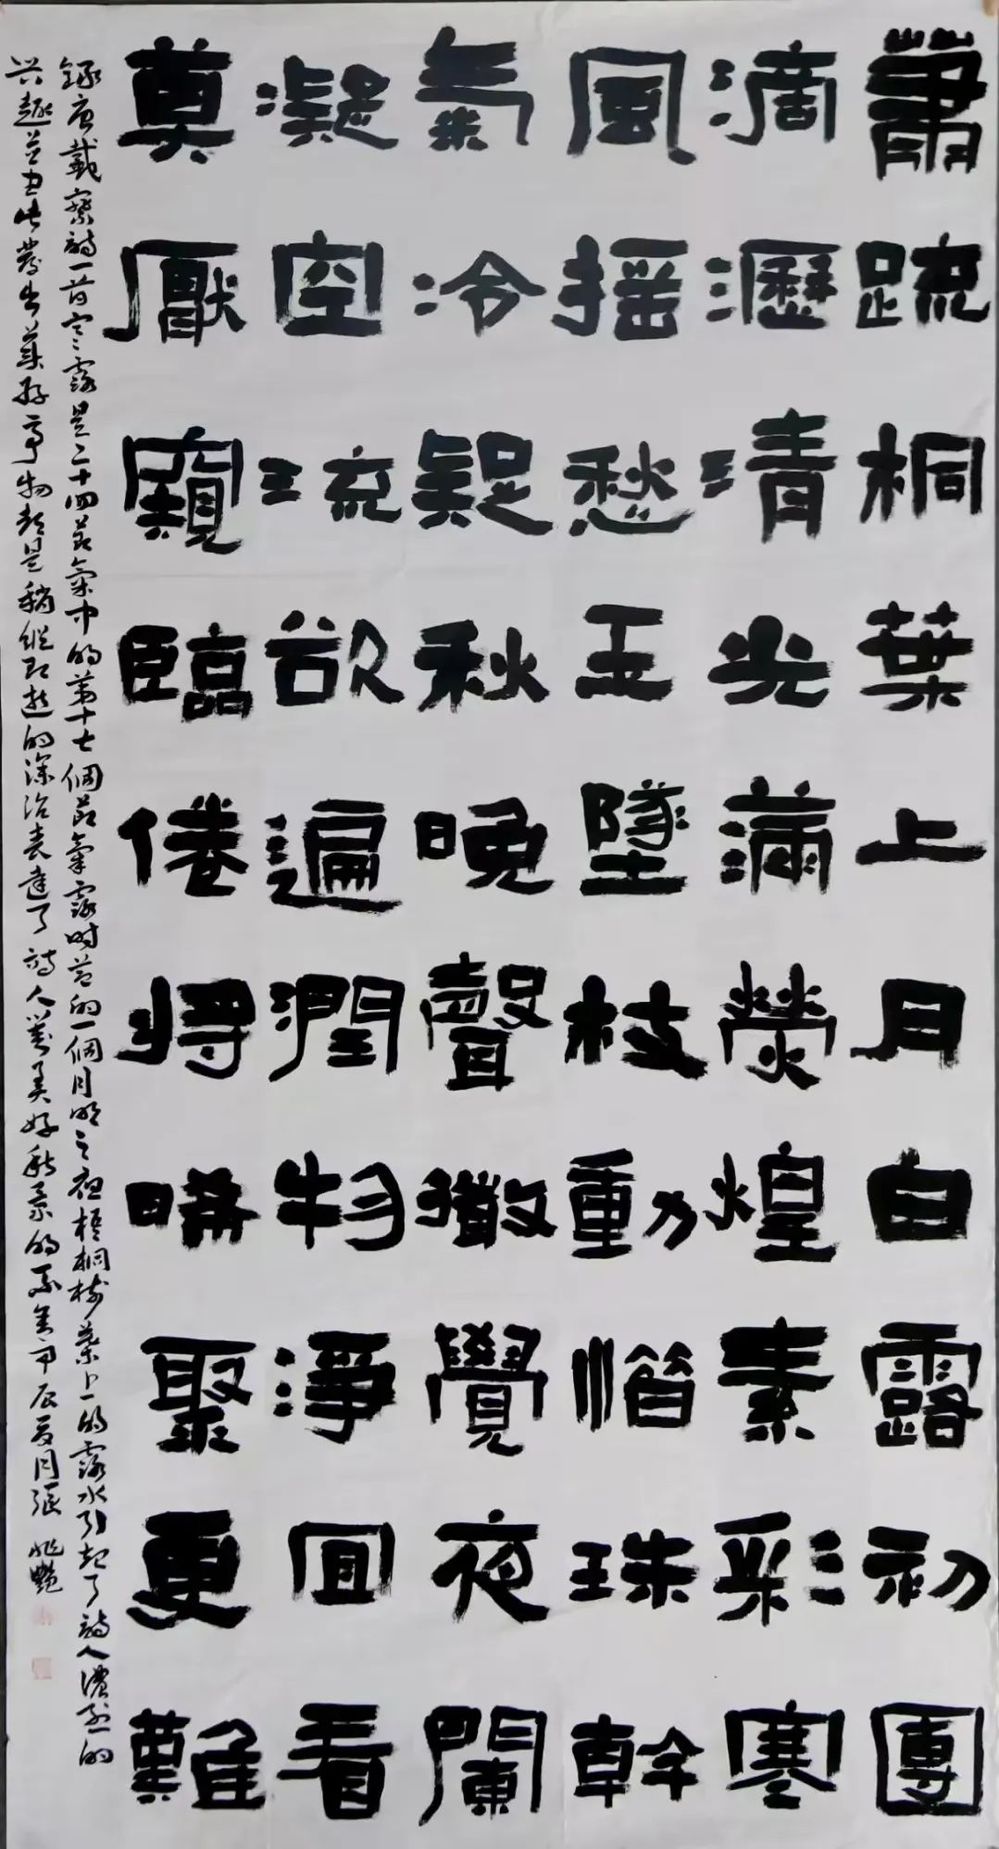 蕭疏桐葉上月白露初團
滴瀝清光滿熒煌素彩寒
風搖愁玉墜枝動惜珠幹
氣冷疑秋晚聲微覺夜闌
凝空流欲遍潤物淨宜看
莫厭窺臨倦將晞聚更難
録唐戴察詩一首寒露是二十四節氣中的第十七個節氣露時節的一個月明之夜梧桐樹葉上的露水引起了詩人濃烈的
兴趣並由此發出美好事物都是稍縱即逝的深沉表達了詩人對美好秋景的不舍甲辰夏月張